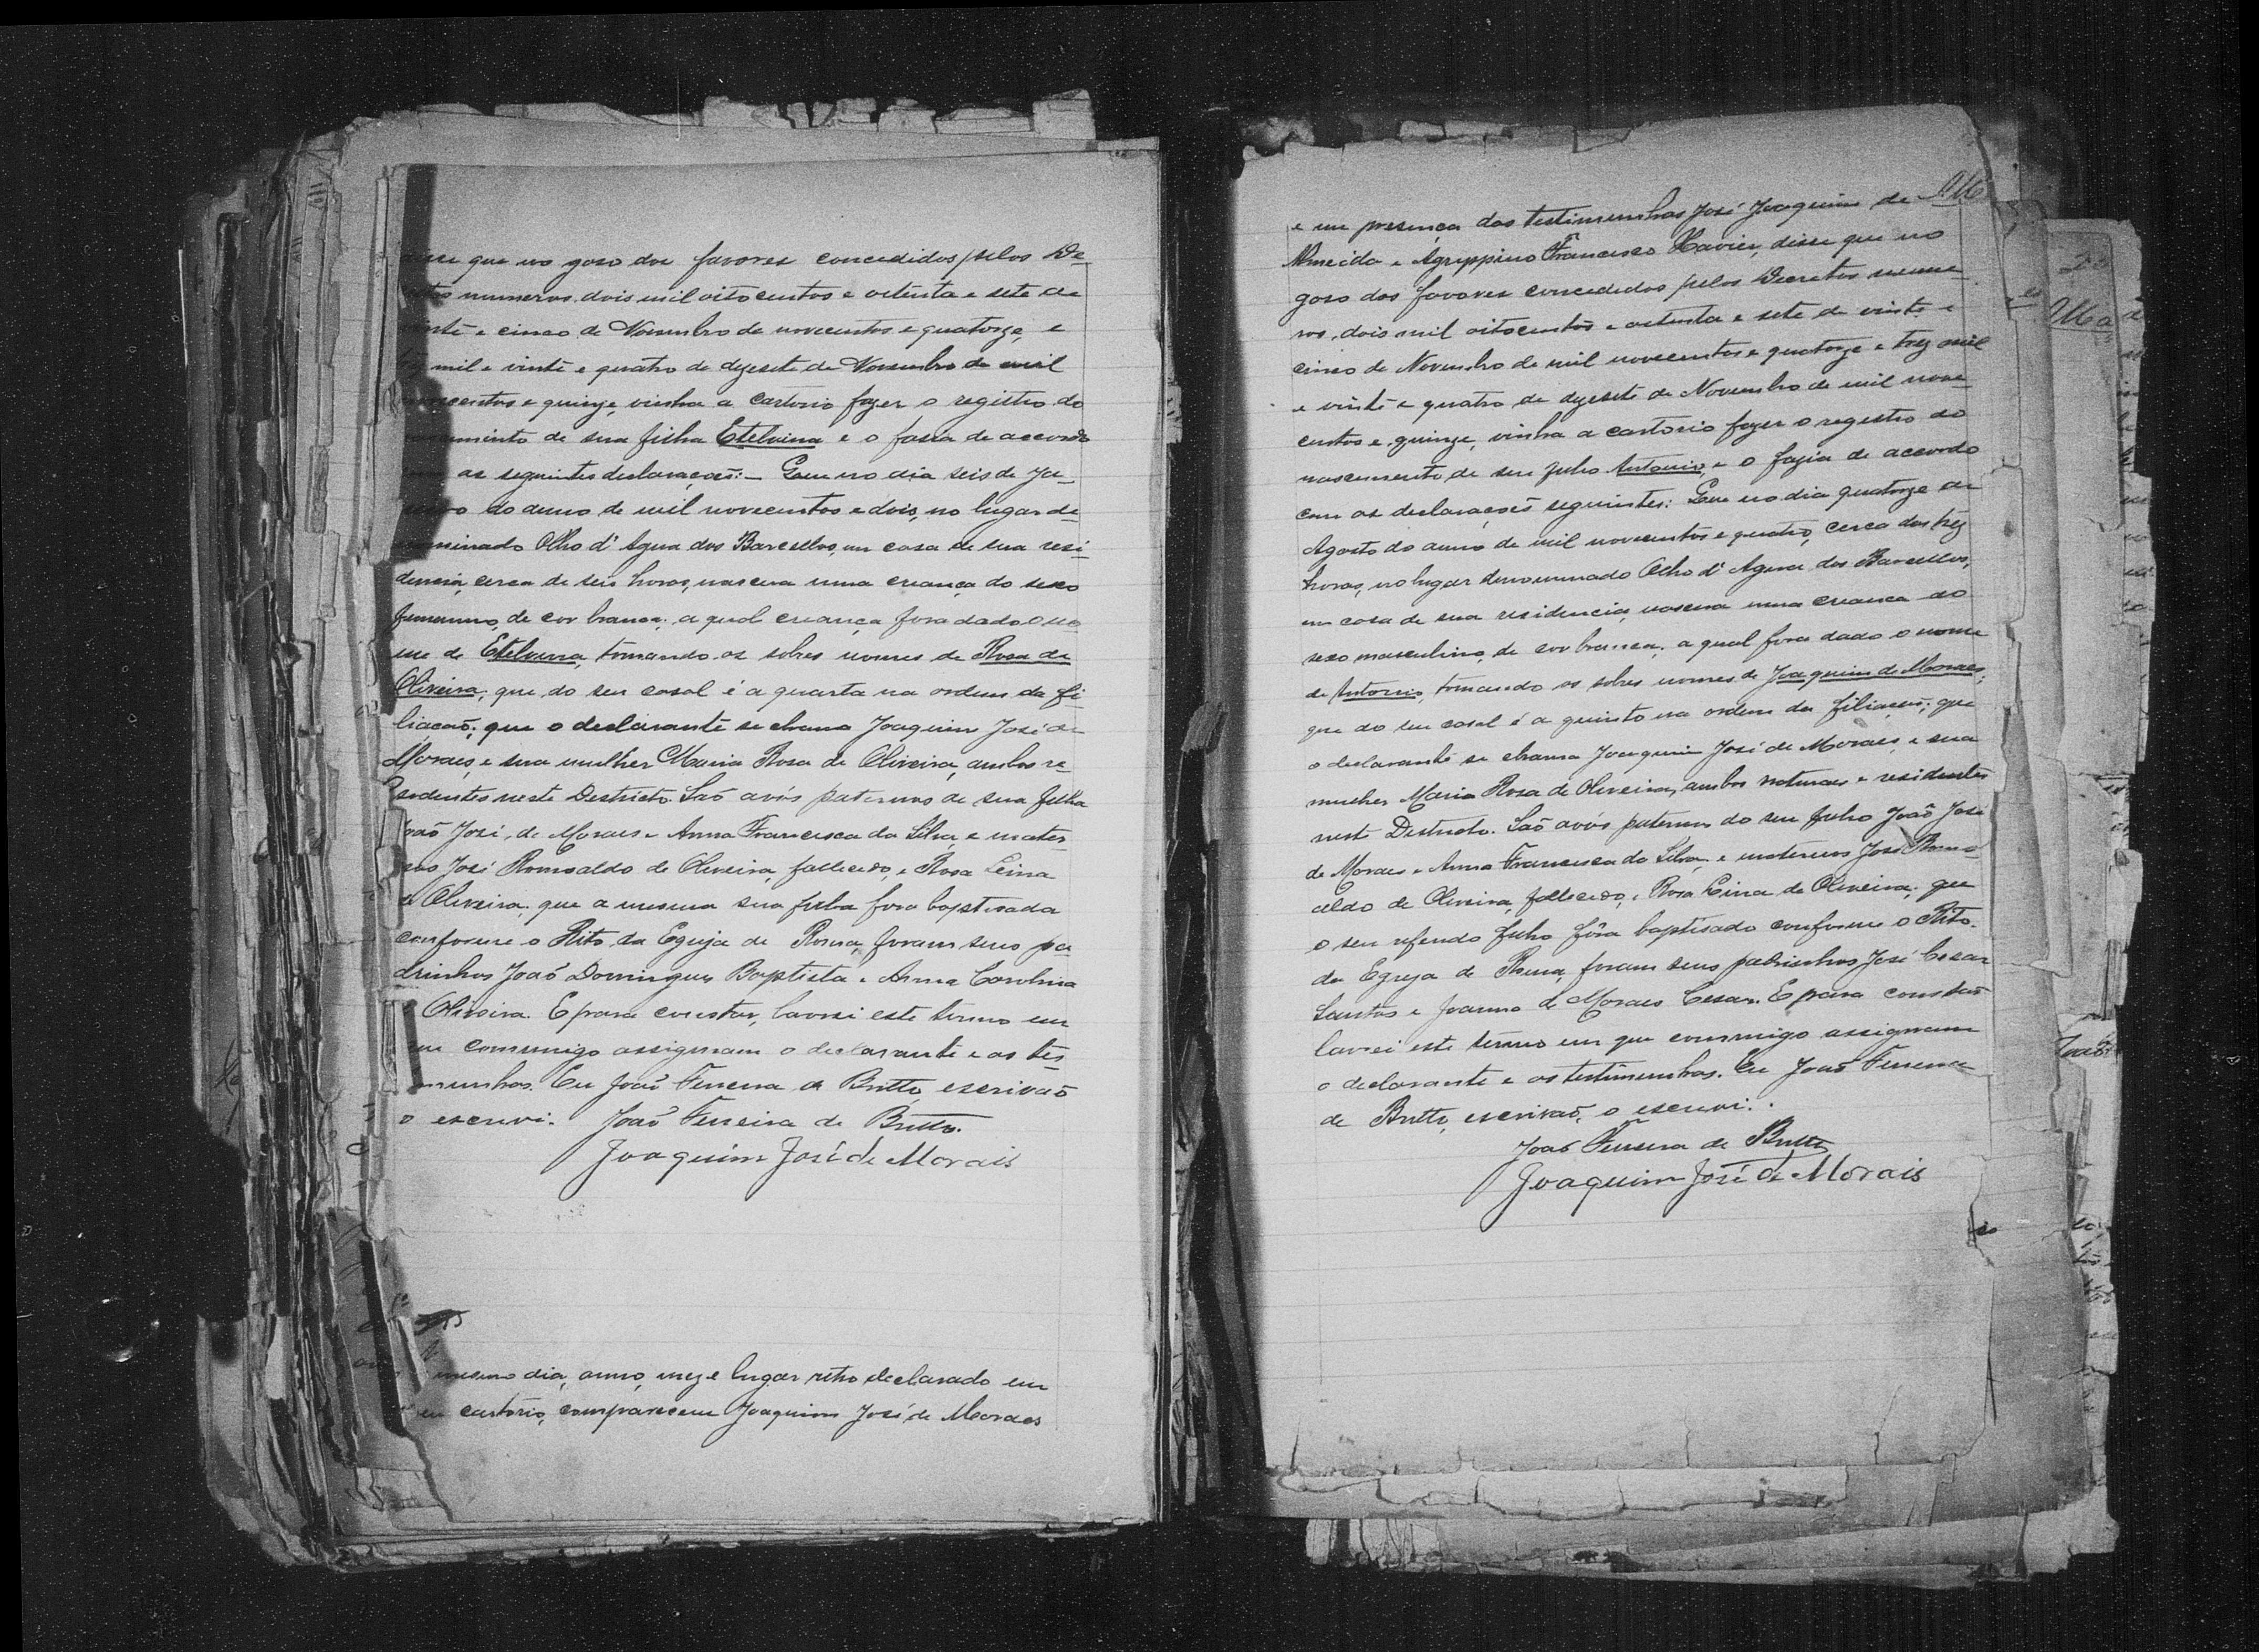 disse que no goso dos favores concedidos pelos De-
numeros dois mil oitocentos e oitenta e sete de
vinte e cinco de Novembro de novecentos e quatorze, e
mil e vinte e quatro de dezesete de Novembro de mil
novecentos e quinze, vinha a cartorio fazer o registro do
nascimento de sua filha Etelvina e o fasia de accordo
as seguintes declarações:- Que no dia seis de Ja-
neiro do anno de mil novecentos e dois, no lugar de-
nominado Olho d'Agua dos Barcellos, em casa de sua resi-
dencia, cerca de seis horas, nascera uma criança do sexo
femenino, de cor branca; a qual criança fora dado o no-
me de Etelvina, tomando os sobres nomes de Rosa de
Oliveira; que do seu casal é a quarta na ordem da fi-
liação; que o declarante se chama Joaquim José de
Moraes, e sua mulher Maria Rosa de Oliveira, ambos re-
sedentes neste Destricto. São avós paternos de sua filha
João José de Moraes e Anna Francisca da Silva, e mater-
nos José Romoaldo de Oliveira, fallecido, e Rosa Leina
de Oliveira; que a mesma sua filha fora baptisada
conforme o Rito da Egreja de Roma, foram seus pa-
drinhos João Domingues Baptista e Anna Carolina
Oliveira. E para constar, lavrei este termo em
que commigo assignam o declarante e as tes-
munhas. Eu João Ferreira de Britto, escrivão
o escrevi. João Ferreira de Britto.
Joaquim José de Morais
mesmo dia, anno, mez e lugar retro declarado em
cartorio, compareceu Joaquim José de Moraes
e em presença das testimunhas José Joaquim de
Almeida e Agrippino Francisco Xavier, disse que no
goso dos favores concedidos pelos Decretos nume-
ros, dois mil oitocentos e oitenta e sete de vinte e
cinco de Novembro de mil novecentos e quatorze e trez mil
e vinte e quatro de dezesete de Novembro de mil nove-
centos e quinze, vinha a cartorio fazer o registro do
nascimento de seu filho Antonio, e o fazia de accordo
com as declarações seguintes: Que no dia quatorze de
Agosto do anno de mil novecentos e quatro, cerca das trez
horas, no lugar denominado Olho d'Agua dos Barcellos,
em casa de sua residencia, nascera uma creança do
sexo masculino, de cor branca; a qual fora dado o nome
de Antonio, tomando os sobres nomes de Joaquim de Moraes;
que do seu casal é a quinto na ordem da filiação; que
o declarante se chama Joaquim José de Moraes, e sua
mulher Maria Rosa de Oliveira, ambos naturaes e residentes
neste Destricto. São avós paternos do seu filho João José
de Moraes e Anna Francisca da Silva, e maternos José Romo-
aldo de Oliveira, fallecido, e Rosa Leina de Oliveira; que
o seu referido filho fôra baptisado conforme o Rito
da Egreja de Roma, foram seus padrinhos José Cesar
Santos e Joanna de Moraes Cesar. E para constar
lavrei este termo em que commigo assignam
o declarante e as testimunhas. Eu João Ferreira
de Britto, escrivão, o escrevi.
João Ferreira de Britto
Joaquim José de Morais